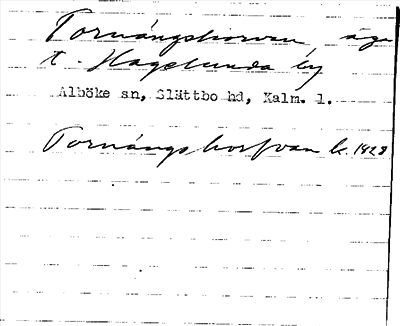 Tornängshorvan äga
t. Hagelunda by
Alböke sn, Slättbo hd, Kalm. l.
Tornängs horfvan k. 1828